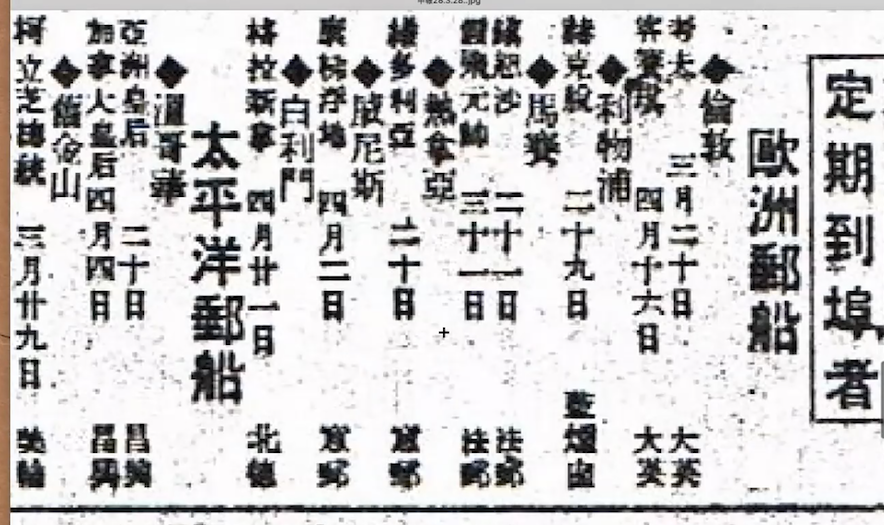 定期到埠者
歐洲郵船
◆倫敦
考夫 三月二十日 大英
四月十六日 大英
◆利物浦
二十九日 藍煙囪
◆馬賽
恩沙 二十一日 法郵
霞飛元帥 三十一日 法郵
◆熱拿亞
維多利亞 二十日 意郵
◆威尼斯
康悌浮地 四月二日 意郵
◆白利門
格拉斯拿 四月廿一日 北德
太平洋郵船
◆溫哥華
亞洲皇后 二十日 昌興
加拿大皇后 四月四日 昌興
◆舊金山
柯立芝總統 三月廿九日 美輪